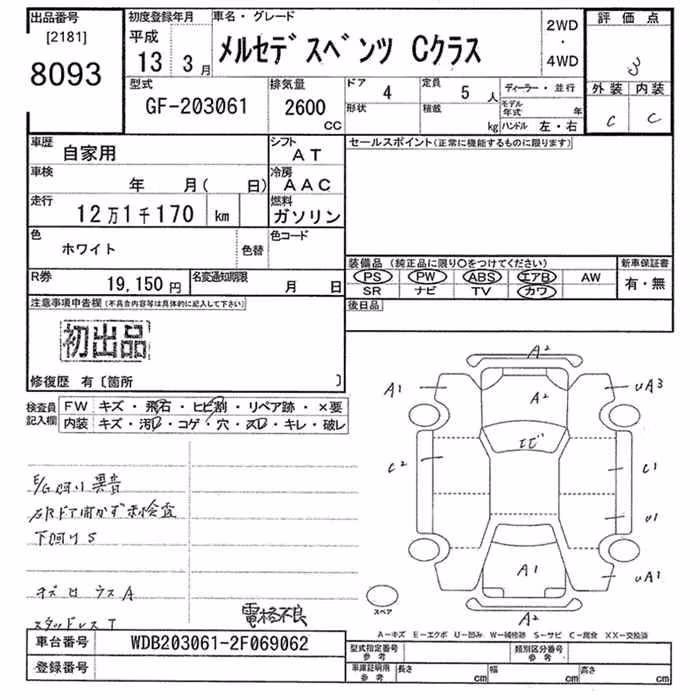 出品番号 初度登録年月 車名・グレード 2WD・4WD 評価点
[2181] 平成
8093 13年3月 メルセデスベンツ Cクラス 3
型式 排気量 ドア 4 定員 5人 ディーラー・並行 外装 内装
GF-203061 2600 CC 形状 積載 kg モデル年式 年 ハンドル 左・右 C C
車歴 自家用 シフト AT セールスポイント(正常に機能するものに限ります)
車検 年 月( 日) 冷房 AAC
走行 12万1千170 km 燃料 ガソリン
色 ホワイト 色替 色コード
装備品 (純正品に限り○をつけてください) 新車保証書
PS PW ABS エアB AW 有・無
SR ナビ TV カワ
R券 19,150円 名変通知期限 月 日
後日品
注意事項申告欄(不具合内容等は具体的に記入して下さい)
初出品
修復歴 有〔箇所 〕
検査員記入欄 FW キズ・飛石・ヒビ割・リペア跡・×要
内装 キズ・汚レ・コゲ・穴・スレ・キレ・破レ
A2
A1 A2 UA3
エビ
C2 C1
U1
A1 UA1
A2
スペア
E/G 異音
検査
下
A
電格不良
A－キズ E－エクボ U－凹み W－補修跡 S－サビ C－腐食 XX－交換済
車台番号 WDB203061-2F069062
型式指定番号 参考 類別区分番号 参考
登録番号
車庫証明用 参考 長さ cm 幅 cm 高さ cm